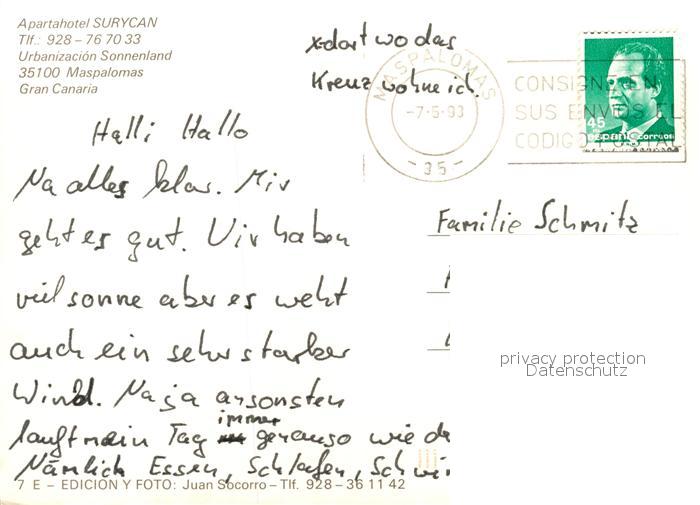 Apartahotel SURYCAN
Tlf.: 928 – 76 70 33
Urbanización Sonnenland
35100 Maspalomas
Gran Canaria
x-dort wo das
Kreuz wohne ich.
MASPALOMAS
-7-5-93
-35-
CONSIGNE EN
SUS ENVIOS EL
CODIGO POSTAL
45
España correos
Halli Hallo
Na alles klar. Mir
geht es gut. Wir haben
viel sonne aber es weht
auch ein sehr starker
Wind. Na ja ansonsten
läuft mein Tag immer genauso wie
Nämlich Essen, Schlafen,
Familie Schmitz
privacy protection
Datenschutz
7 E – EDICION Y FOTO: Juan Socorro – Tlf. 928 – 36 11 42